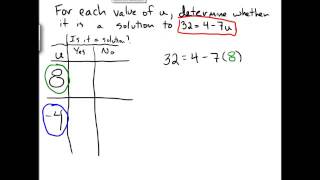 For each value of u, determine whether
it is a solution to 32 = 4 - 7u
Is it a solution?
u Yes No
8
-4
32 = 4 - 7(8)